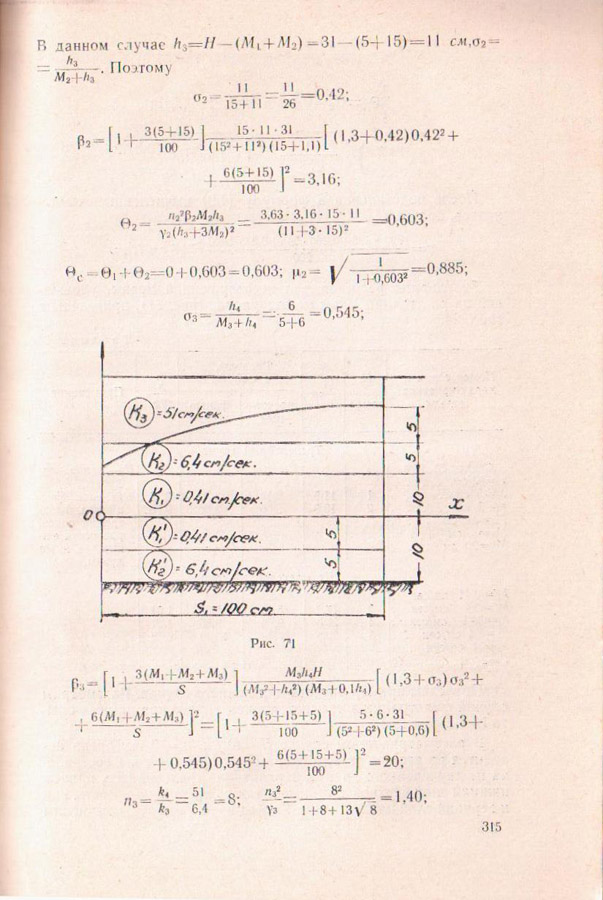 В данном случае h₃=H—(M₁+M₂)=31—(5+15)=11 см, σ₂=
= h₃/(M₂+h₃). Поэтому
σ₂= 11/(15+11) = 11/26 =0,42;
β₂=[1+ 3(5+15)/100] 15·11·31/((15²+11²)(15+1,1)) [(1,3+0,42)0,42²+
+ 6(5+15)/100]²=3,16;
Θ₂= n₂²β₂M₂h₃/(γ₂(h₃+3M₂)²) = 3,63·3,16·15·11/(11+3·15)² =0,603;
Θc=Θ₁+Θ₂=0+0,603=0,603; μ₂= √(1/(1+0,603²)) =0,885;
σ₃= h₄/(M₃+h₄) = 6/(5+6) =0,545;
K₃ = 51 cm/сек.
5
K₂ = 6,4 cm/сек.
5
K₁ = 0,41 cm/сек.
10
x
O
K₁' = 0,41 cm/сек.
5
10
K₂' = 6,4 cm/сек.
5
S₁ = 100 cm
Рис. 71
β₃=[1+ 3(M₁+M₂+M₃)/S] M₃h₄H/((M₃²+h₄²)(M₃+0,1h₄)) [(1,3+σ₃)σ₃²+
+ 6(M₁+M₂+M₃)/S]²=[1+ 3(5+15+5)/100] 5·6·31/((5²+6²)(5+0,6)) [(1,3+
+0,545)0,545²+ 6(5+15+5)/100]²=20;
n₃= k₄/k₃ = 51/6,4 =8; n₃²/γ₃ = 8²/(1+8+13√8) =1,40;
315